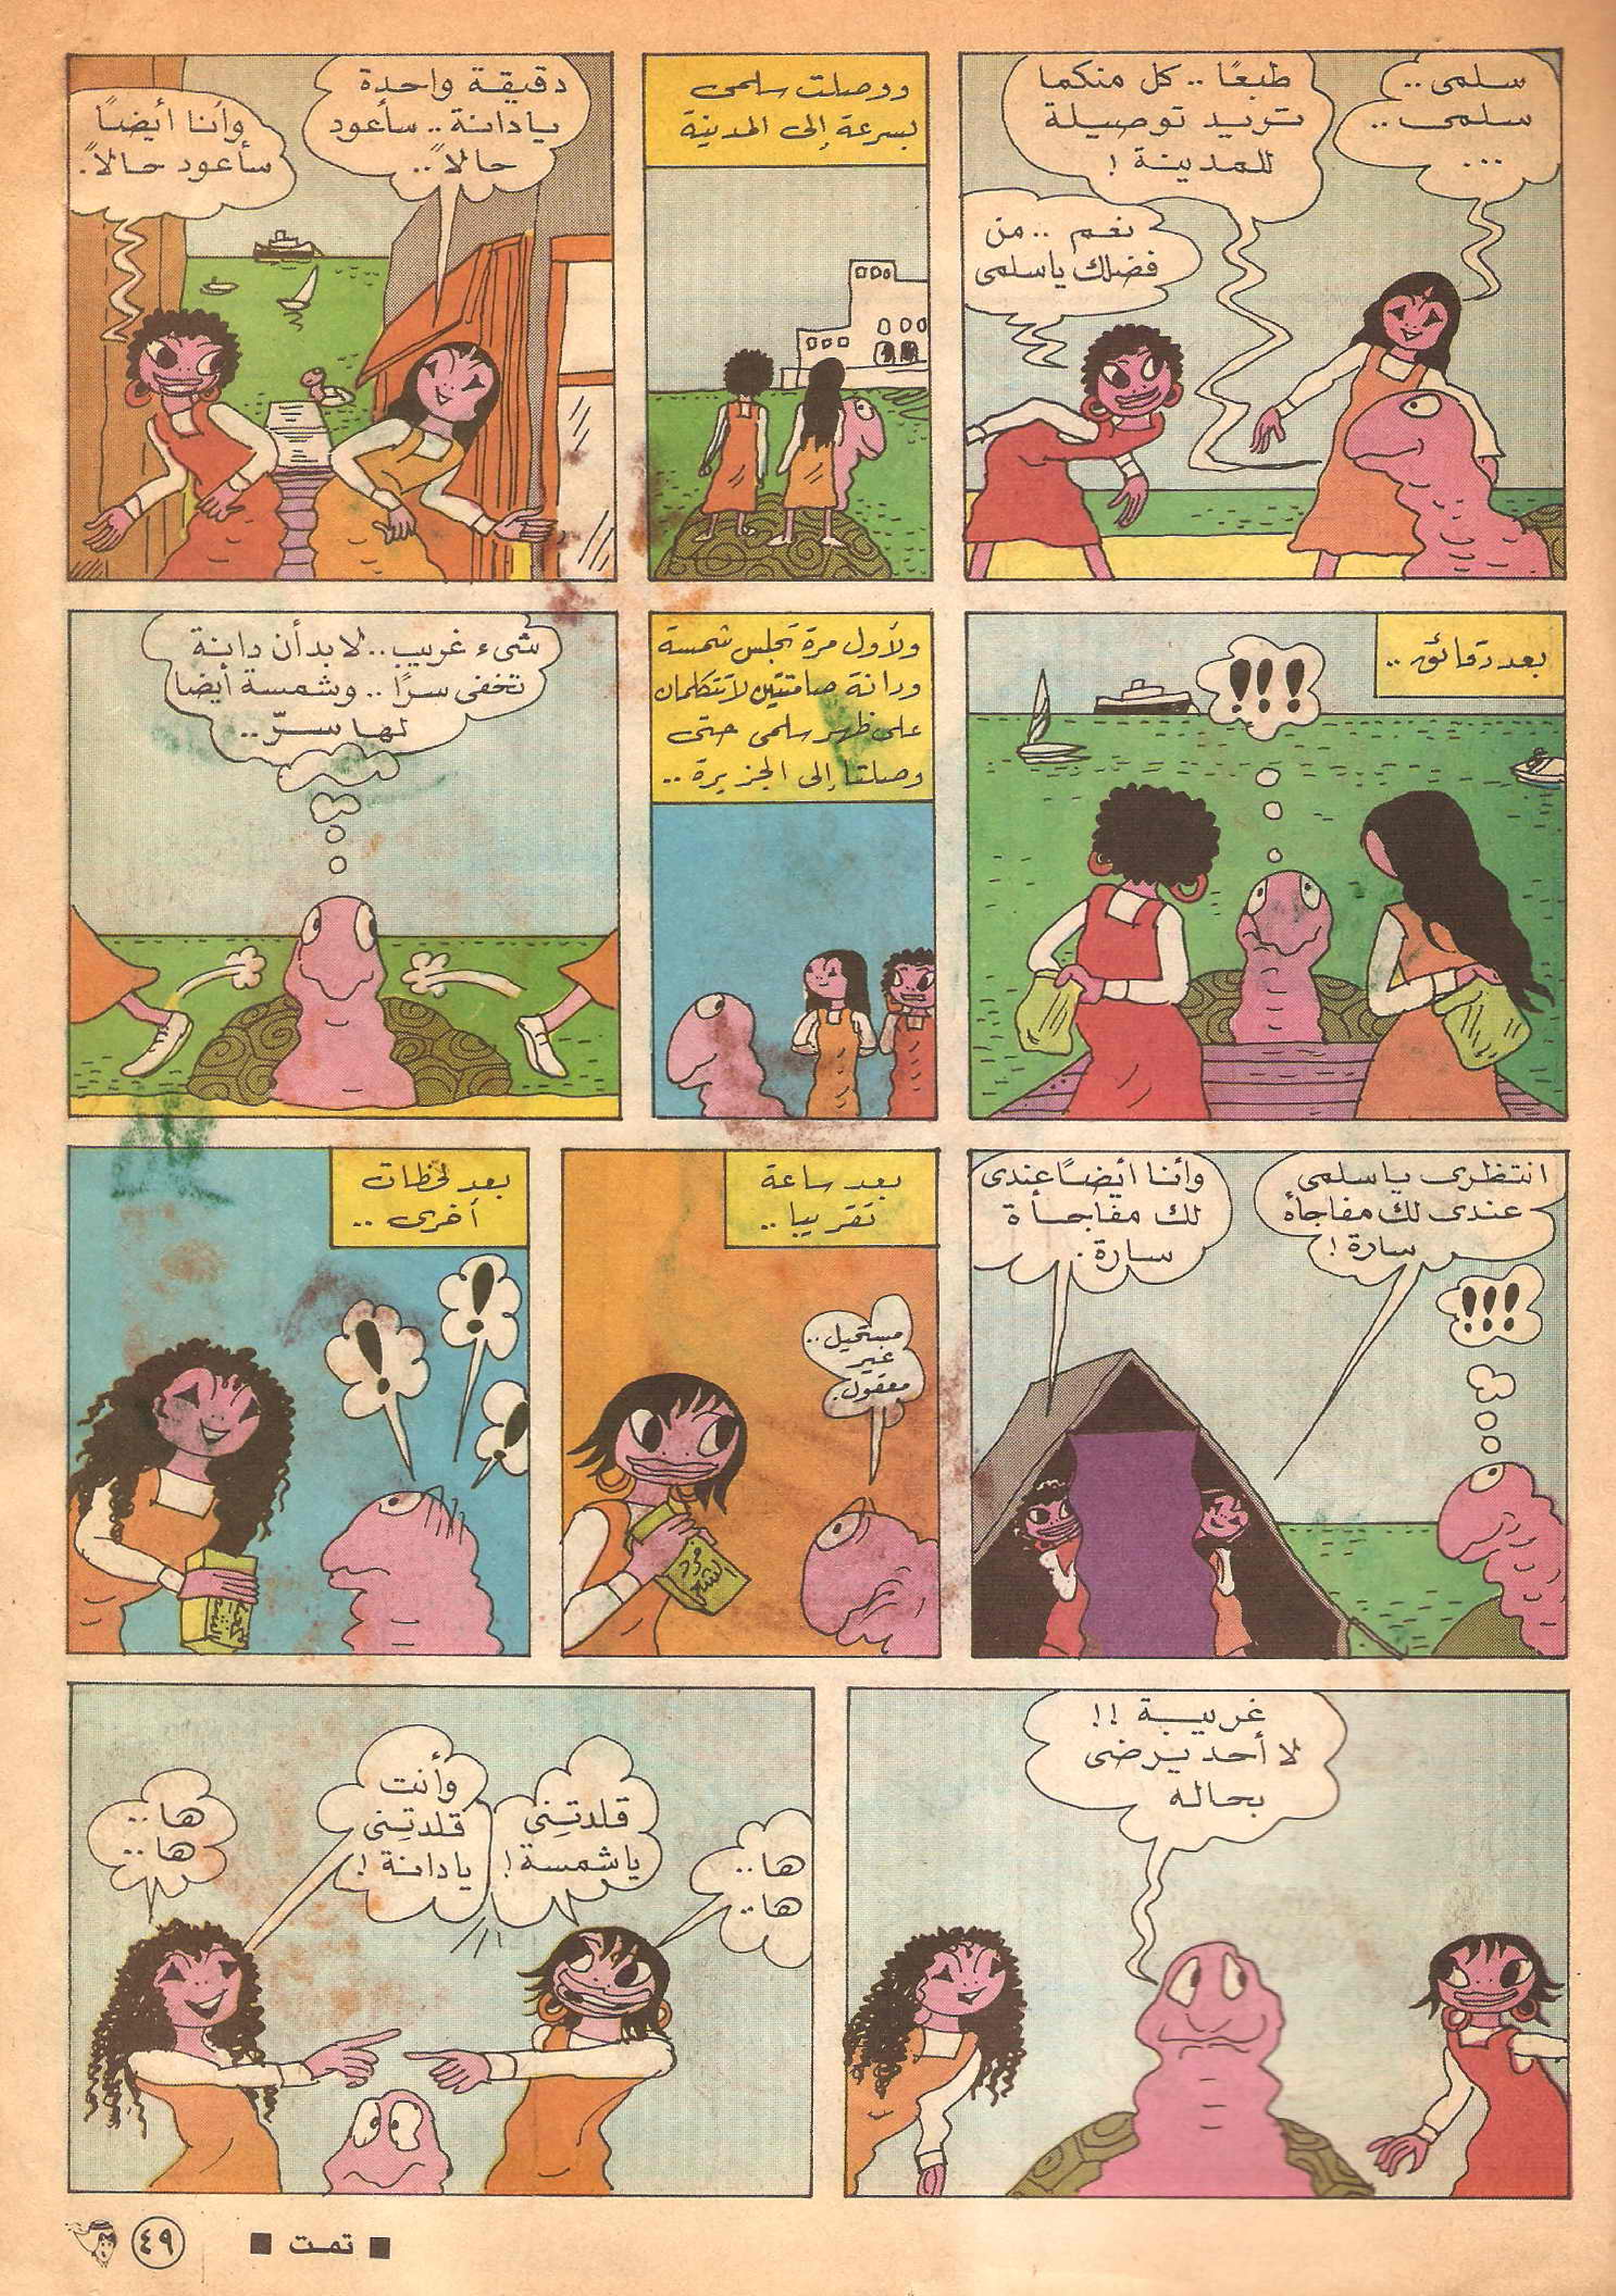 سلمى ..
سلمى ..
...
طبعًا .. كل منكما
تريد توصيلة
للمدينة !
نعم .. من
فضلك ياسلمى
ووصلت سلمى
بسرعة إلى المدينة
دقيقة واحدة
يادانة .. سأعود
حالاً ..
وأنا أيضًا
سأعود حالاً .
بعد دقائق ..
!!!
ولأول مرة تجلس شمسة
ودانة صامتتين لاتتكلمان
على ظهر سلمى حتى
وصلتا إلى الجزيرة ..
شىء غريب .. لابد أن دانة
تخفى سرًا .. وشمسة أيضا
لها سرّ ..
انتظرى ياسلمى
عندى لك مفاجأة
سارة !
وأنا أيضًا عندى
لك مفاجأة
سارة .
!!!
بعد ساعة
تقريبا ..
مستحيل ..
غير
معقول .
فرد
الشعر
بعد لحظات
أخرى ..
!
!
!
غريبة !!
لا أحد يرضى
بحاله
ها ..
ها ..
قلدتِنى
ياشمسة !
وأنت
قلدتِنى
يادانة !
ها ..
ها ..
■ تمت ■
٤٩